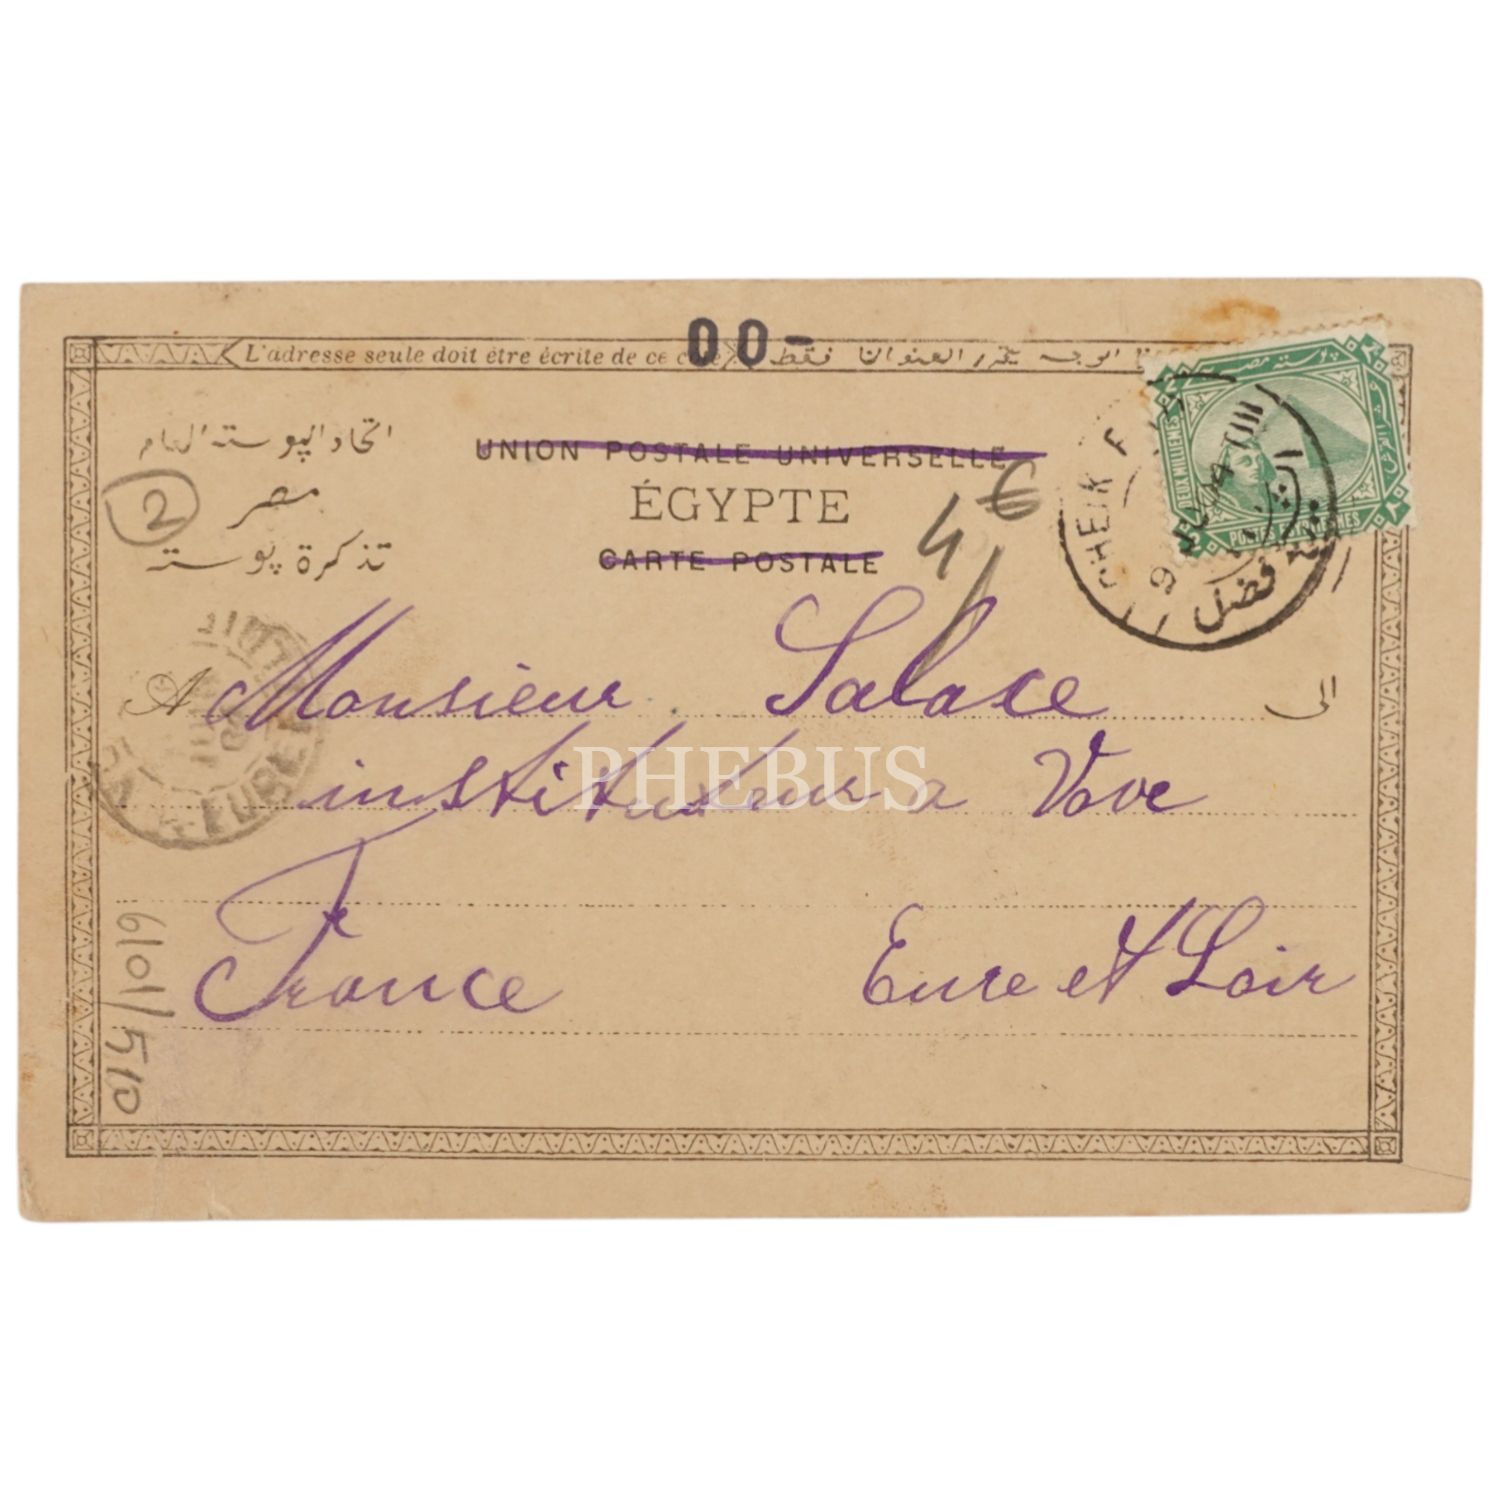 00-
L'adresse seule doit être écrite de ce côté
فقط العنوان
اتحاد البوستة العام
مصر
تذكرة بوستة
UNION POSTALE UNIVERSELLE
ÉGYPTE
CARTE POSTALE
2
4 €
بوستة مصر
DEUX MILLIEMES
POSTES EGYPTIENNES
CHEIK F
9 VI 04 T III
فضل
A Monsieur Salace الى
instituteur a Vove
France Eure et Loir
EURE
6101/510
PHEBUS